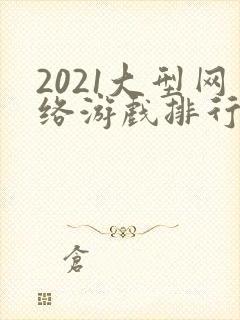 2021大型网
络游戏排行
倉